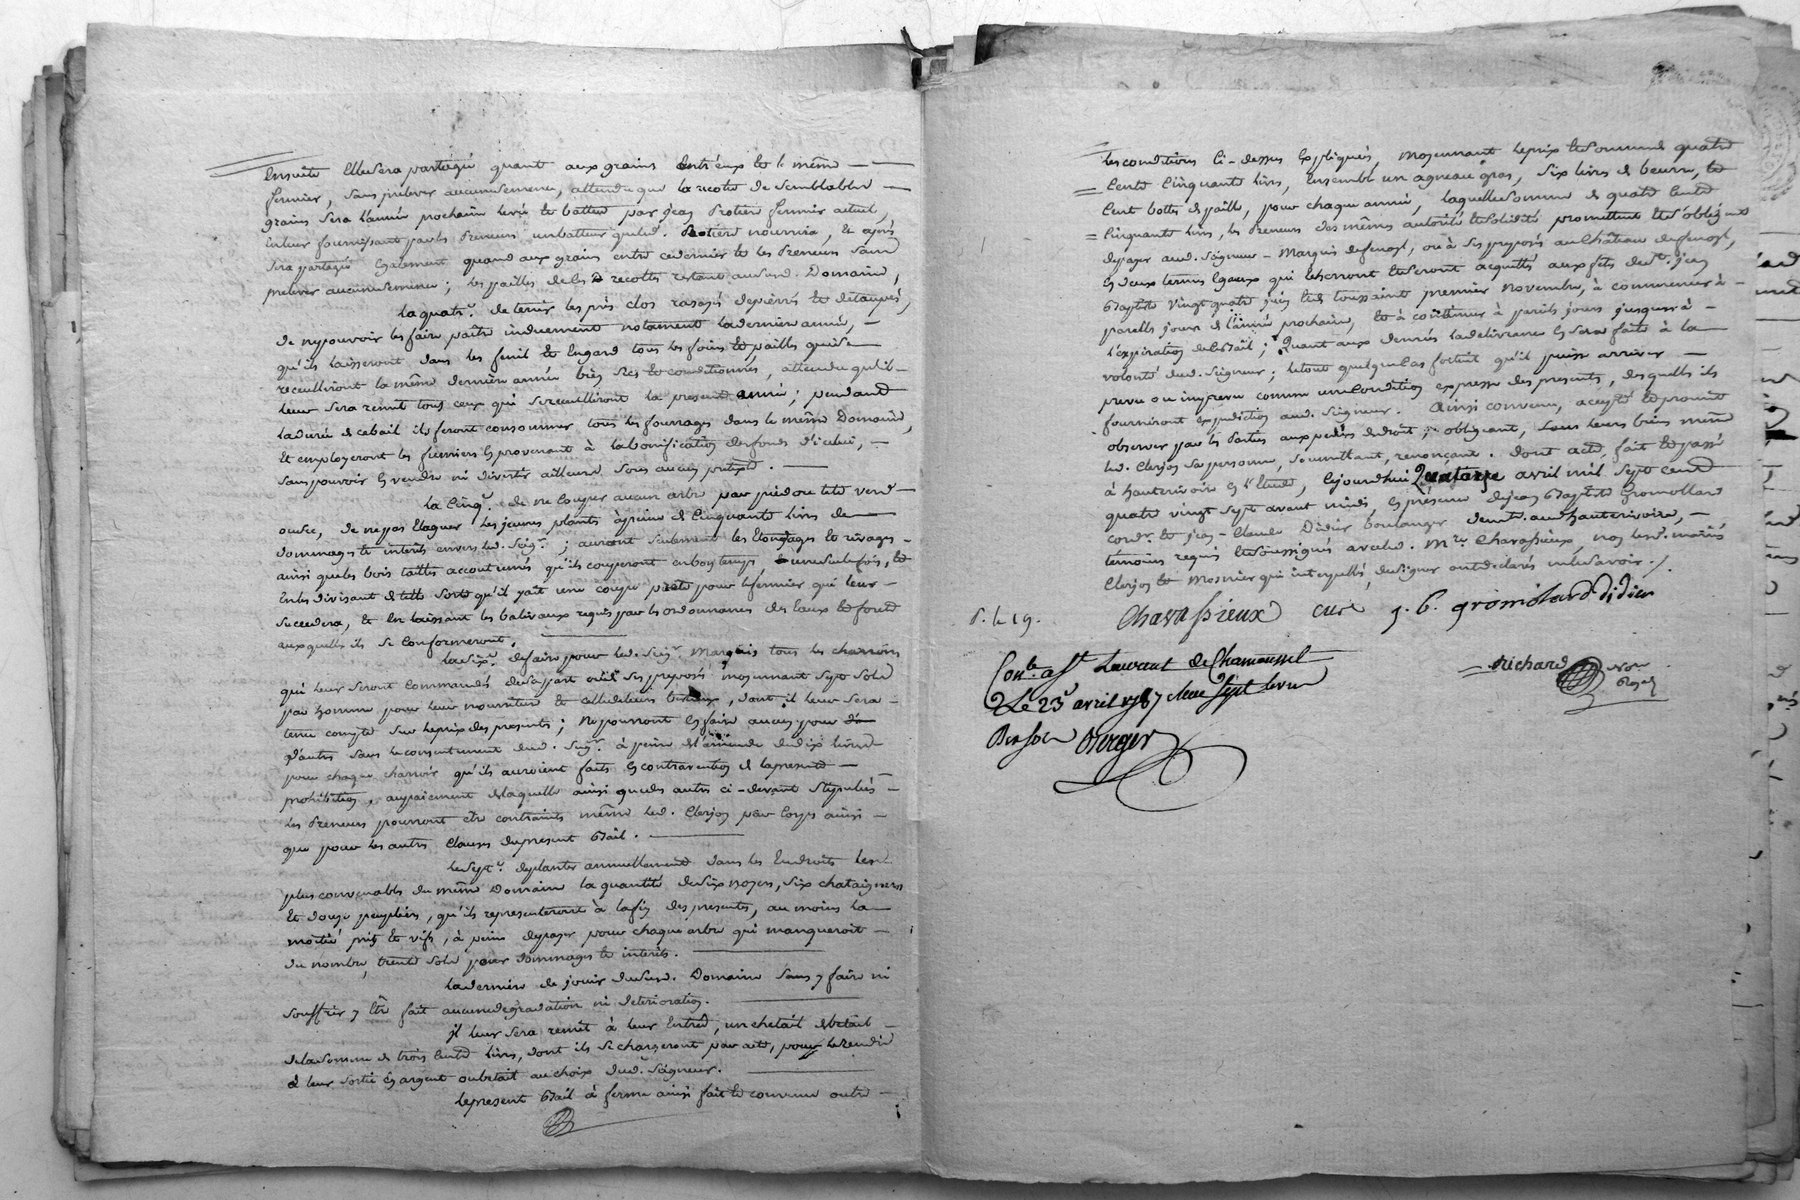 ensuite elle sera partagée quant aux grains entr'eux et le même
fermier, sans prelever aucune semence, attendu que la recolte de semblables
grains sera l'année prochaine levée et battue par jean Protière fermier actuel,
en leur fournissant par les Preneurs un batteur que led. Protière nourrira, et après
sera partagée egalement quand aux grains entre ce dernier et les Preneurs sans
prelever aucune semence ; les pailles de lad. recolte restant au susd. Domaine,
la quatr.e de tenir les près clos rasagés depierrés et detaupés,
de ne pouvoir les faire paître induement notament la derniere année,
qu'ils laisseront dans les fenil et engard tous les foins et pailles qui se
receuilliront la même derniere année bien secs et conditionnés, attendu qu'il
leur sera remit tous ceux qui se receuilliront la presente année ; pendant
la durée de ce bail ils feront consommer tous les fourrages dans le même Domaine,
et employeront les fumiers en provenant à la bonification des fonds d'icelui,
sans pouvoir en vendre ni divertir ailleurs, sous aucun pretexte.
la Cinq.e de ne couper aucun arbre par pied ou tete verd
ou sec, de ne pas elaguer les jeunes plants à peine de Cinquante livres de
dommages et interets envers led. Seig.r ; auront seulement les élondages et rivages
ainsi que les bois taillis accoutumés qu'ils couperont en bon temps, une seule fois, et
en les divisant de telle sorte qu'il y ait une coupe prete pour le fermier qui leur
succedera, et en laissant les balivaux requis par les ordonnances des Eaux et forets
auxquelles ils se conformeront.
la six.e de faire pour led. Seig.r Marquis tous les charrois
qui leur seront commandés de sa part ou de ses preposés moyennant sept sols
par homme pour leur nourriture et celle de leurs bestiaux, dont il leur sera
tenu compte sur le prix des presentes ; ne pourront en faire aucun pour
d'autres sans le consentement dud. Seig.r à peine de l'amende de dix livres
pour chaque charroir qu'ils auroient faits en contravention de la presente
prohibition, au paiement de laquelle ainsi que des autres ci-devant stipulées
les Preneurs pourront être contraints même led. Clerjon par Corps ainsi
que pour les autres clauses du present Bail.
la Sept.e de planter annuellement dans les endroits les
plus convenables du même Domaine la quantité de six noyers, six chataigners
et douze peupliers, qu'ils representeront à la fin des presentes, au moins la
moitié pris et vifs, à peine de payer pour chaque arbre qui manqueroit
du nombre, trente sols pour dommages et interets.
la derniere de jouir du susd. Domaine sans y faire ni
souffrir y être fait aucune degradation ni deterioration.
il leur sera remit à leur entrée, un chetail de betail
de la somme de trois cents livres, dont ils se chargeront par acte, pour le rendre
à leur sortie en argent ou betail au choix dud. Seigneur.
le present Bail à ferme ainsi fait et convenu outre
les conditions ci-dessus expliquées, moyennant le prix et somme de quatre
Cents Cinquante livres, ensemble un agneau gras, six livres de beurre, et
Cent bottes de paille, pour chaque année, laquelle somme de quatre cents
Cinquante livres, les Preneurs des mêmes autorité et solidité promettent et s'obligent
de payer aud. Seigneur Marquis de fenoyl, ou à ses preposés au Château de fenoyl,
en deux termes egaux qui echerront et seront acquittés aux fêtes de s.t jean
Baptiste vingt quatre juin et de toussaint premier novembre, à commencer à
pareils jours de l'année prochaine, et à continuer à pareils jours jusques à
l'expiration de ce Bail ; Quant aux denrés la delivrance en sera faite à la
volonté dud. Seigneur ; le tout quelque Cas fortuit qu'il puisse arriver
prevu ou imprevu comme une Condition expresse des presentes, desquelles ils
fourniront expedition aud. Seigneur. Ainsi convenu, accepté et promit
observer par les Parties aux peines de droit, obligeant, tous leurs biens même
led. Clerjon sa personne, soumettant, renonçant. Dont acte, fait et passé
à hauterivoire en l'Etude, cejourdhui Quatorze avril mil sept cent
quatre vingt sept avant midi, en présence de jean Baptiste Gromollard
cord.r et jean-Claude Didier boulanger demt. aud. hauterivoire,
temoins requis et soussignés avec led. M.re Chavassieux, non lesd. mariés
Clerjon et Mosnier qui interpellés, de signer ont declarés ne le savoir ./.
S. le 19. Chavassieux curé j. b. gromolard didier
Richard No.re Royal
Con.le a St Laurent de Chamousset
Le 23 avril 1787 Reçu sept livres
Berger